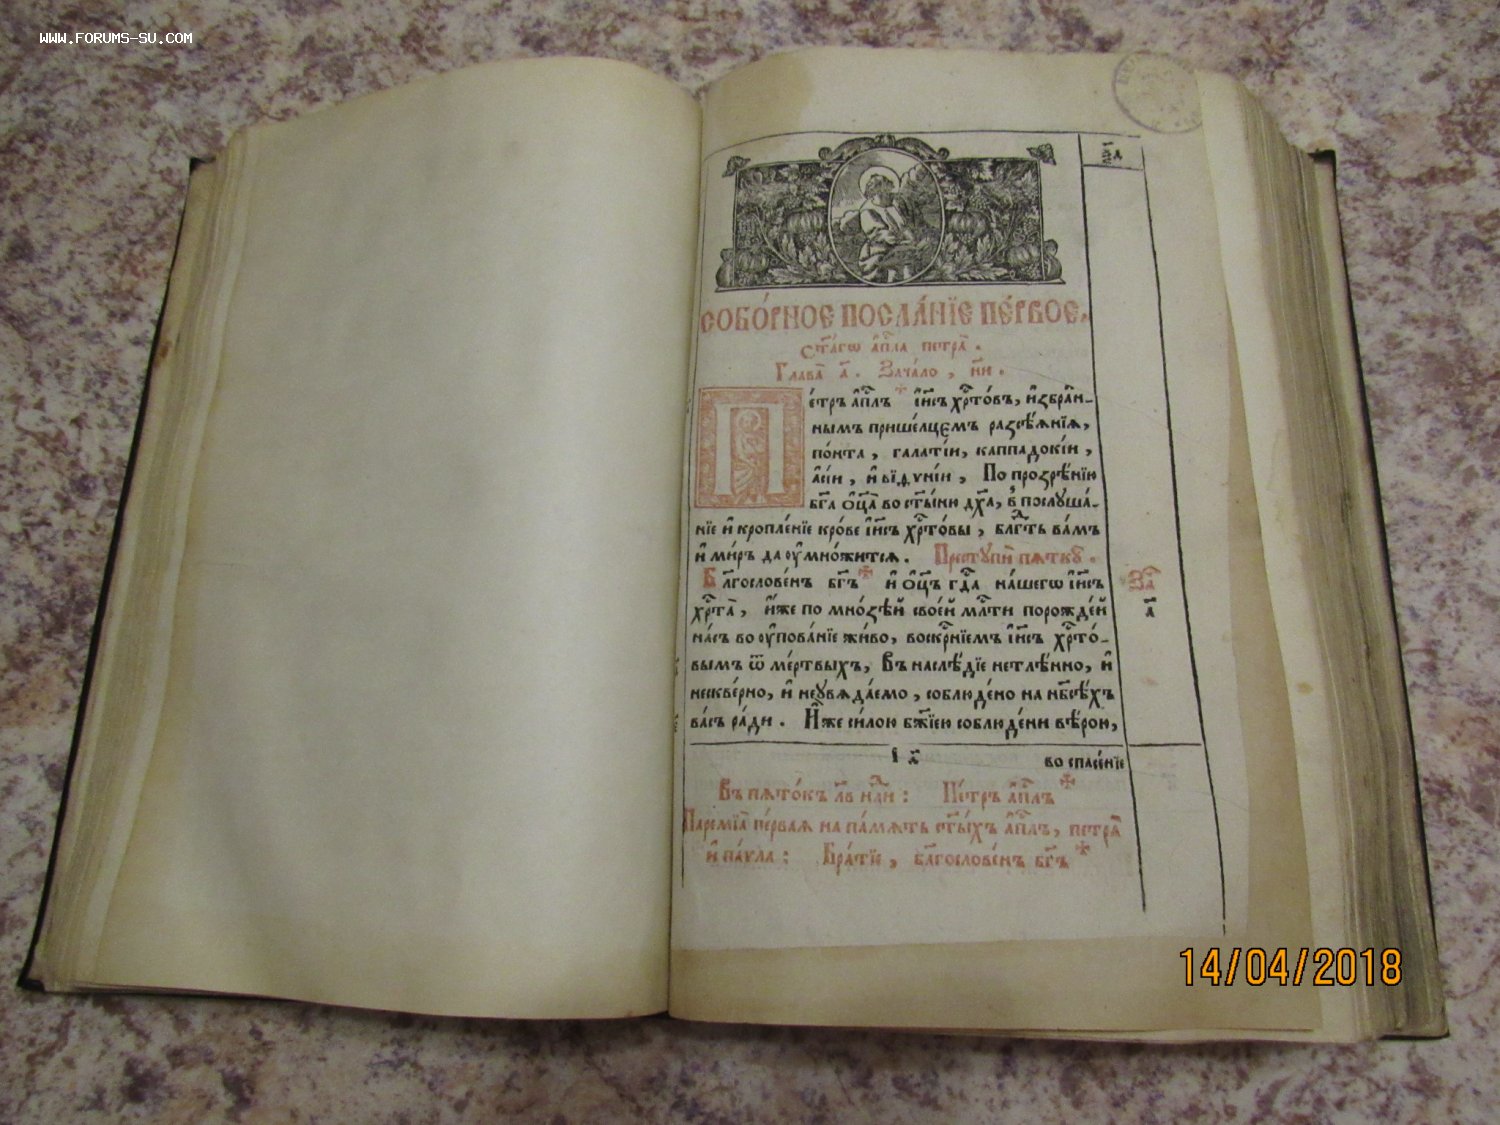 WWW.FORUMS-SU.COM
СОБО́РНОЕ ПОСЛА́НЇЕ ПЕ́РВОЕ,
Ст҃а́гѡ а҆пⷭ҇ла петра̀.
Глава̀ а҃. Зача́ло, н҃и.
Пе́тръ а҆пⷭ҇лъ і҆и҃съ хрⷭ҇то́въ, и҆збра́н-
нымъ прише́лцемъ разсѣ́ѧнїѧ,
по́нта, гала́тїи, каппадокі́и,
а҆сі́и, и҆ виѳѷні́и, По прозрѣ́нїю
бг҃а ѻ҆ц҃а̀ во ст҃ы́ни дх҃а, в̾ послꙋша́-
нїе и҆ кропле́нїе кро́ве і҆и҃съ хрⷭ҇то́вы, блгⷣть ва́мъ
и҆ ми́ръ да ᲂу҆мно́житсѧ. Престꙋпѝ пѧткꙋ̀.
Блг҃ослове́нъ бг҃ъ и҆ ѻ҆ц҃ъ гдⷭ҇а на́шегѡ і҆и҃съ
хрⷭ҇та̀, и҆́же по мно́зѣй свое́й млⷭ҇ти порожде́й
на́съ во ᲂу҆пова́нїе жи́во, воскрⷭ҇нїемъ і҆и҃съ хрⷭ҇то́-
вымъ ѿ ме́ртвыхъ, Въ наслѣ́дїе нетлѣ́нно, и҆
нескве́рно, и҆ неᲂувѧда́емо, соблюде́но на нб҃сѣ́хъ
ва́съ ра́ди. И҆̀же си́лою бж҃їею соблюде́ни вѣ́рою,
За҄
а҃
во спасе́нїе
Въ пѧто́къ л҃в нⷣли: Пе́тръ а҆пⷭ҇лъ
Паремїѧ̀ пе́рваѧ на па́мѧть ст҃ы́хъ а҆пⷭ҇лъ, петра̀
и҆ па́ѵла: Бра́тїе, блг҃ослове́нъ бг҃ъ
14/04/2018